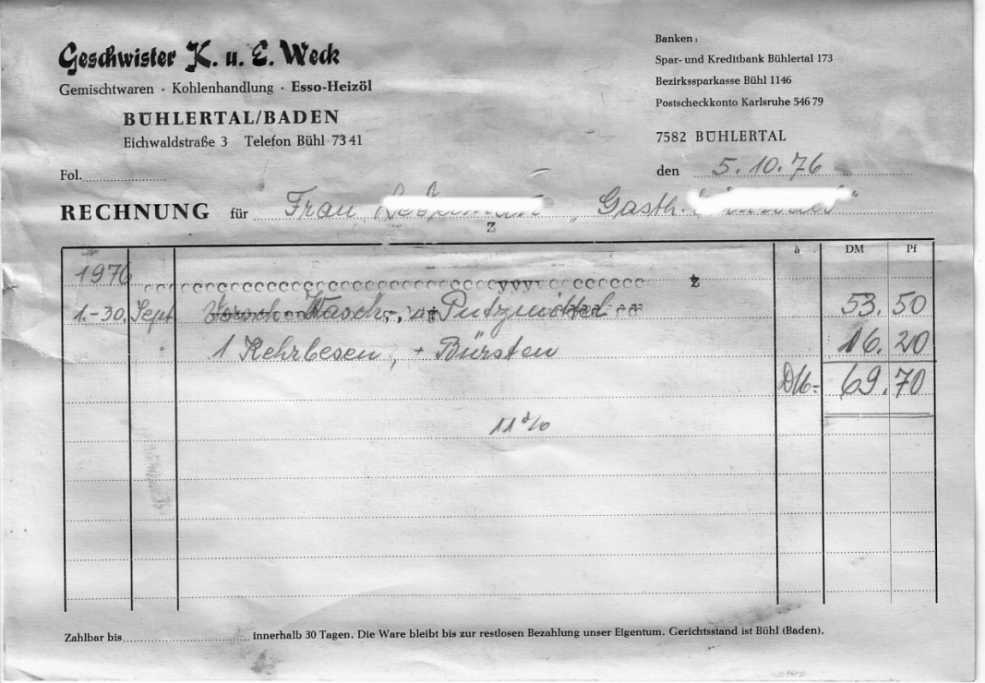 Geschwister K. u. E. Weck
Gemischtwaren · Kohlenhandlung · Esso-Heizöl
BÜHLERTAL/BADEN
Eichwaldstraße 3 Telefon Bühl 73 41
Banken:
Spar- und Kreditbank Bühlertal 173
Bezirkssparkasse Bühl 1146
Postscheckkonto Karlsruhe 546 79
7582 BÜHLERTAL
den 5.10.76
Fol.
RECHNUNG für Frau „Gasth. "
z
à DM Pf
1976
cccccccccccccccccccccccyyyyccccccccc z
1.-30. Sept Wasch-, u. Putzmittel 53.50
1 Kehrbesen, + Bürsten 16.20
DM= 69.70
11%
Zahlbar bis innerhalb 30 Tagen. Die Ware bleibt bis zur restlosen Bezahlung unser Eigentum. Gerichtsstand ist Bühl (Baden).